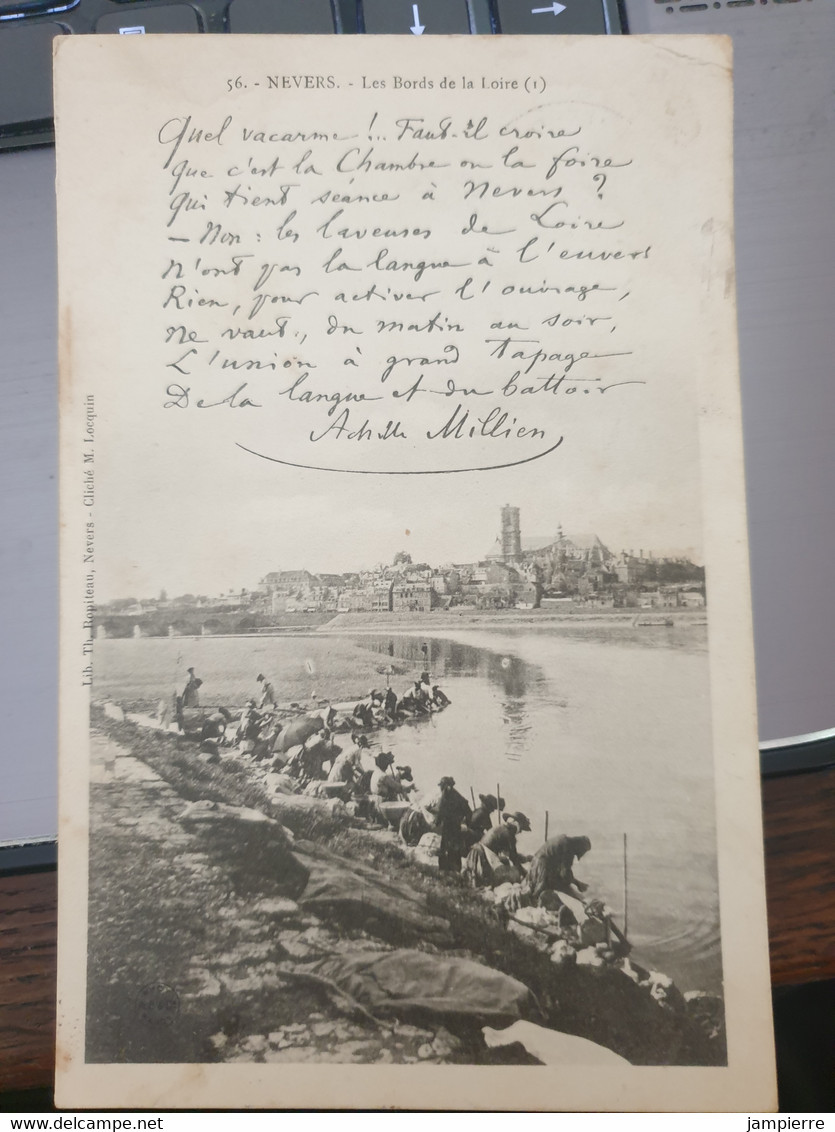 56. - NEVERS. - Les Bords de la Loire (1)
Quel vacarme !.. Faut-il croire
Que c'est la Chambre ou la foire
Qui tient séance à Nevers ?
— Non : les laveuses de Loire
N'ont pas la langue à l'envers
Rien, pour activer l'ouvrage,
Ne vaut, du matin au soir,
L'union à grand tapage
De la langue et du battoir
Achille Millien
Lib. Th. Ropiteau, Nevers - Cliché M. Locquin
jampierre